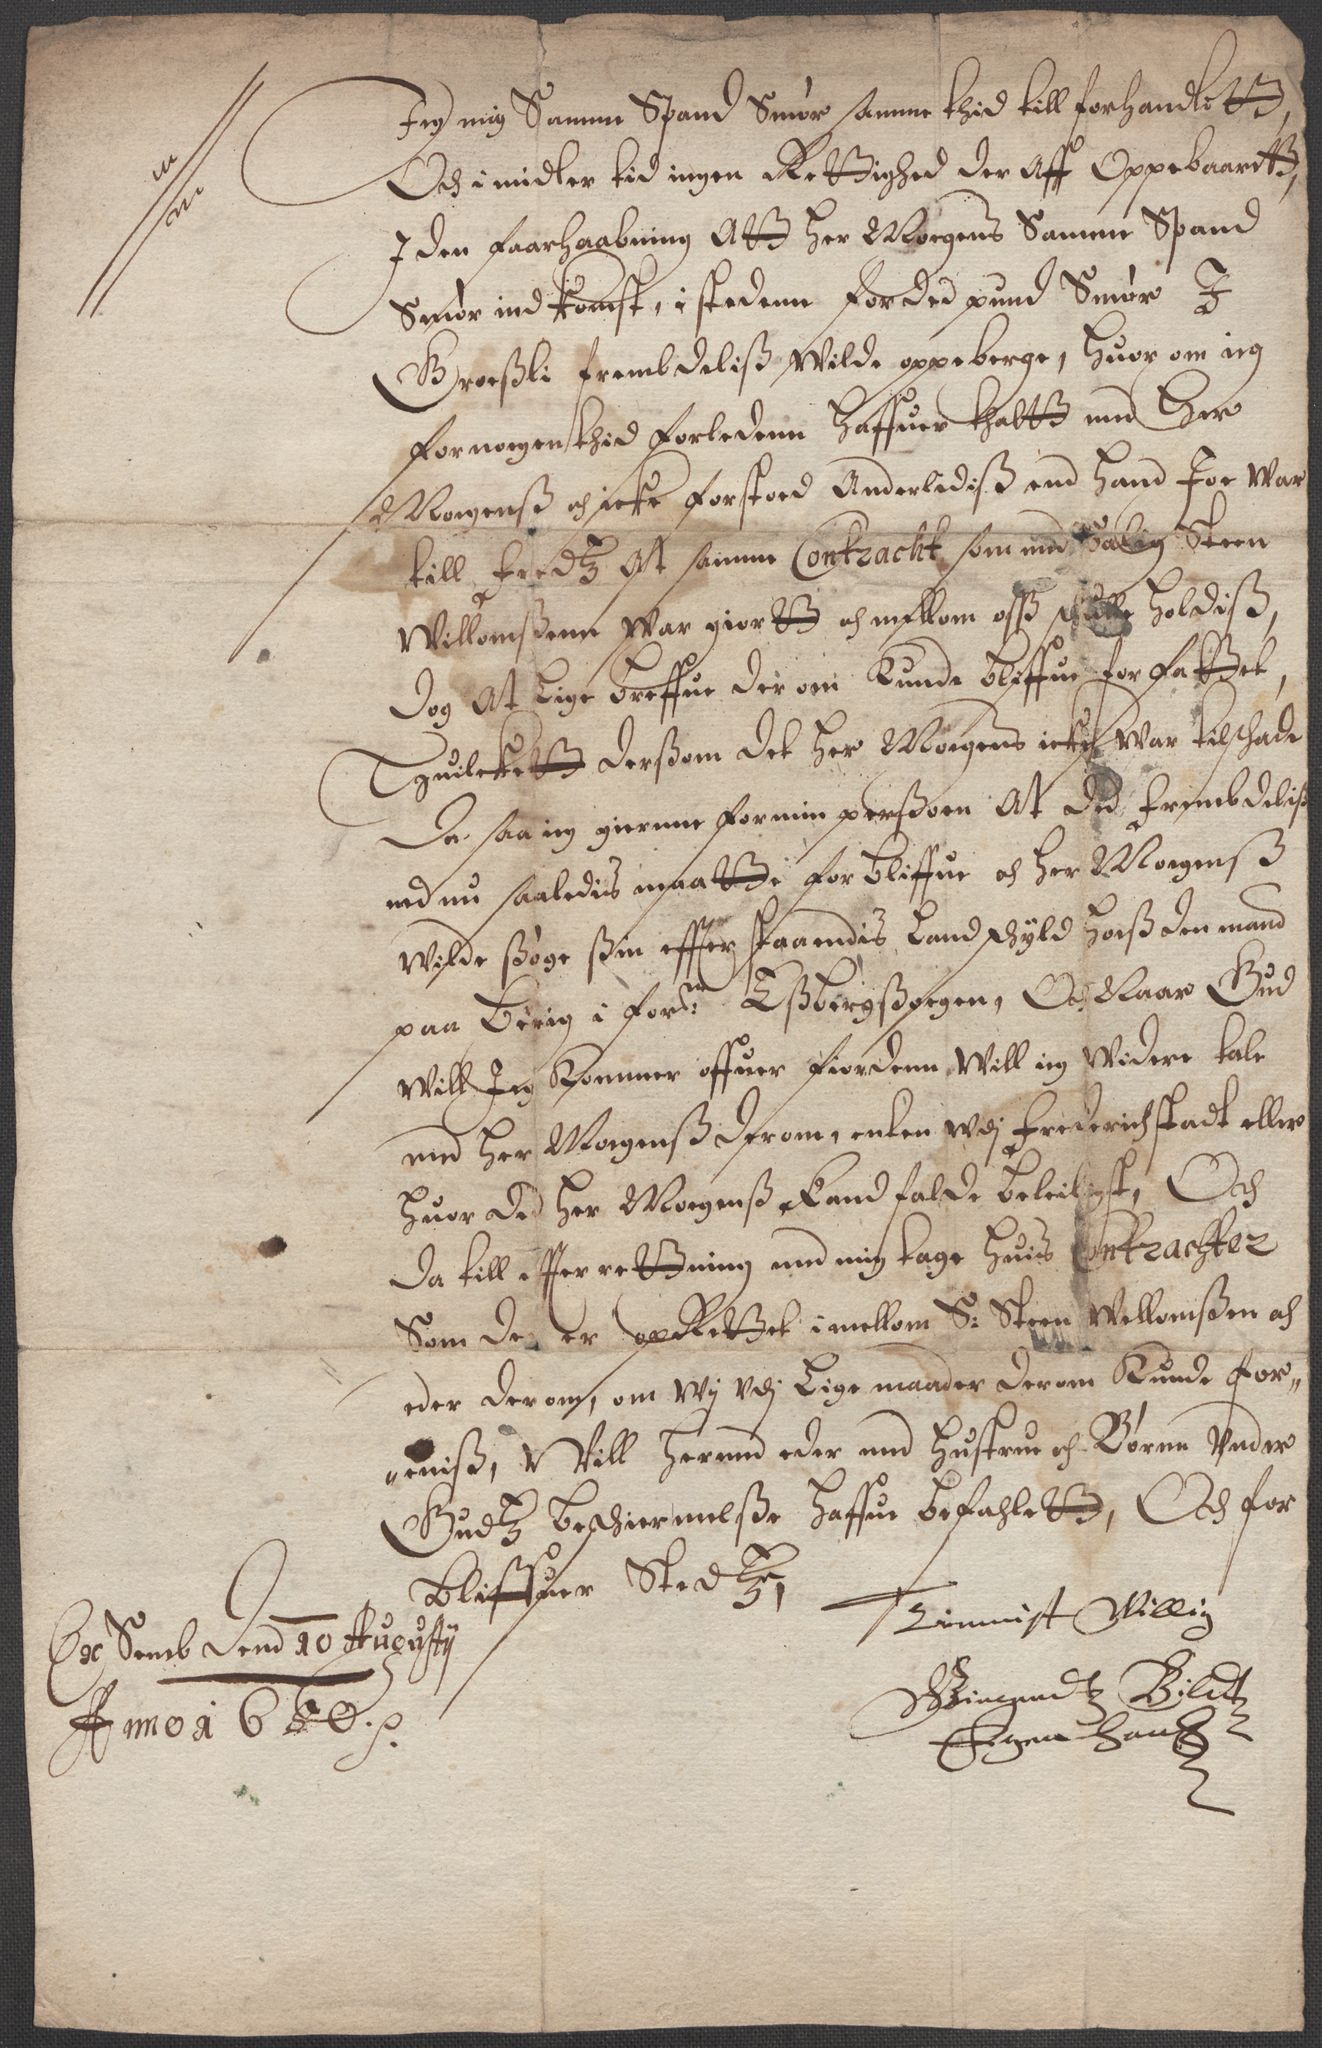 Jeg mig Samme Spand Smør samme thid till forhandlett,
Och i midler tid ingen Rettighed der Aff Oppebaaret,
J den faarhaabning Att her Mogens Samme Spand
Smør ind komst, i stedenn for ded pund Smør J
Groeszli frembdelisz Wilde oppeberge, huor om ieg
for nogen thid forledenn haffuer thalt med her
Mogensz och icke forstoed Anderledisz end hand Joe War
till fredtz At samme Contracht som med Salig Steen
Willomszenn War giortt och mellom osz skulle holdisz,
Dog At Lige breffue der om Kunde bliffue forfattet,
Huilckett dersom det her Mogens icke War till schade
Da saa ieg gierne for min perszoen At ded frembdelisz
end nu saaledis maatte forbliffue och her Mogensz
Wilde szøge szin effterstaaendis Landschyld hosz den mand
paa berig i forne Eszbergszogen, Och Naar Gud
Will Jeg Kommer offuer fiordenn Will ieg Widere tale
med her Mogensz derom, enten Wdj Frederichstadt eller
huor ded her Mogensz kand falde beleiligst, Och
da till effterrettning med mig tage huis Contrachter
Som der er opRettet imellom S: Steen Willomszen och
eder derom, om Wij Vdj Lige maader derom Kunde for„
„enisz, Will hermed eder med Hustrue och Børnn Vnder
Gudtz beschiermelsze haffue befahlett, Och for
bliffuer Stedtze,
Tiennist Willig
Bildt
Egen handt
Ex Semb Dend 10 Augusty
Anno 1650.